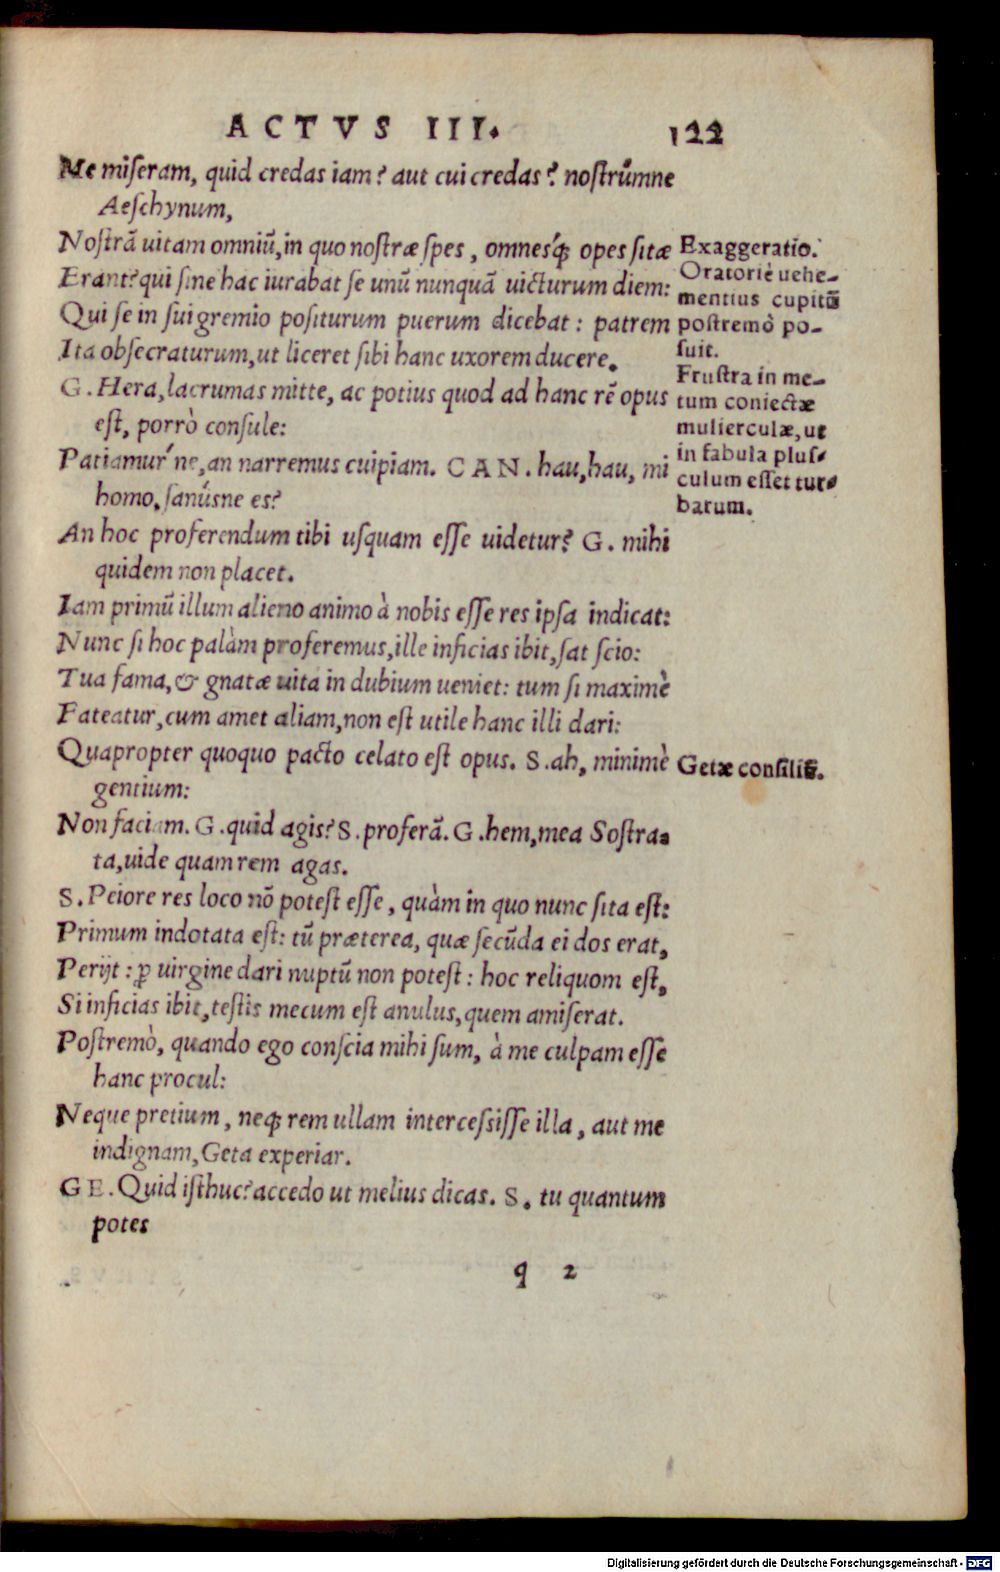 ACTVS III.
122
Me miſeram, quid credas iam? aut cui credas? noſtrúmne
Aeſchynum,
Noſtrã uitam omniũ, in quo noſtræ ſpes, omneſq́; opes ſitæ
Erant? qui ſine hac iurabat ſe unũ nunquã uicturum diem:
Qui ſe in ſui gremio poſiturum puerum dicebat: patrem
Ita obſecraturum, ut liceret ſibi hanc uxorem ducere.
G. Hera, lacrumas mitte, ac potius quod ad hanc rẽ opus
eſt, porrò conſule:
Patiamur´ne, an narremus cuipiam. CAN. hau, hau, mi
homo, ſanúsne es?
An hoc proferendum tibi uſquam eſſe uidetur? G. mihi
quidem non placet.
Iam primũ illum alieno animo à nobis eſſe res ipſa indicat:
Nunc ſi hoc palàm proferemus, ille inficias ibit, ſat ſcio:
Tua fama, & gnatæ uita in dubium ueniet: tum ſi maximè
Fateatur, cum amet aliam, non eſt utile hanc illi dari:
Quapropter quoquo pacto celato eſt opus. S. ah, minimè
gentium:
Non faciam. G. quid agis? S. proferã. G. hem, mea Soſtra-
ta, uide quam rem agas.
S. Peiore res loco nõ poteſt eſſe, quàm in quo nunc ſita eſt:
Primum indotata eſt: tũ præterea, quæ ſecũda ei dos erat,
Perijt: ꝓ uirgine dari nuptũ non poteſt: hoc reliquom eſt,
Si inficias ibit, teſtis mecum eſt anulus, quem amiſerat.
Poſtremò, quando ego conſcia mihi ſum, à me culpam eſſe
hanc procul:
Neque pretium, neq; rem ullam interceſsiſſe illa, aut me
indignam, Geta experiar.
GE. Quid iſthuc? accedo ut melius dicas. S. tu quantum
potes
q 2
Exaggeratio.
Oratoriè uehe-
mentius cupitũ
poſtremò po-
ſuit.
Fruſtra in me-
tum coniectæ
mulierculæ, ut
in fabula pluſ-
culum eſſet tur-
barum.
Getæ conſiliũ.
Digitalisierung gefördert durch die Deutsche Forschungsgemeinschaft - DFG